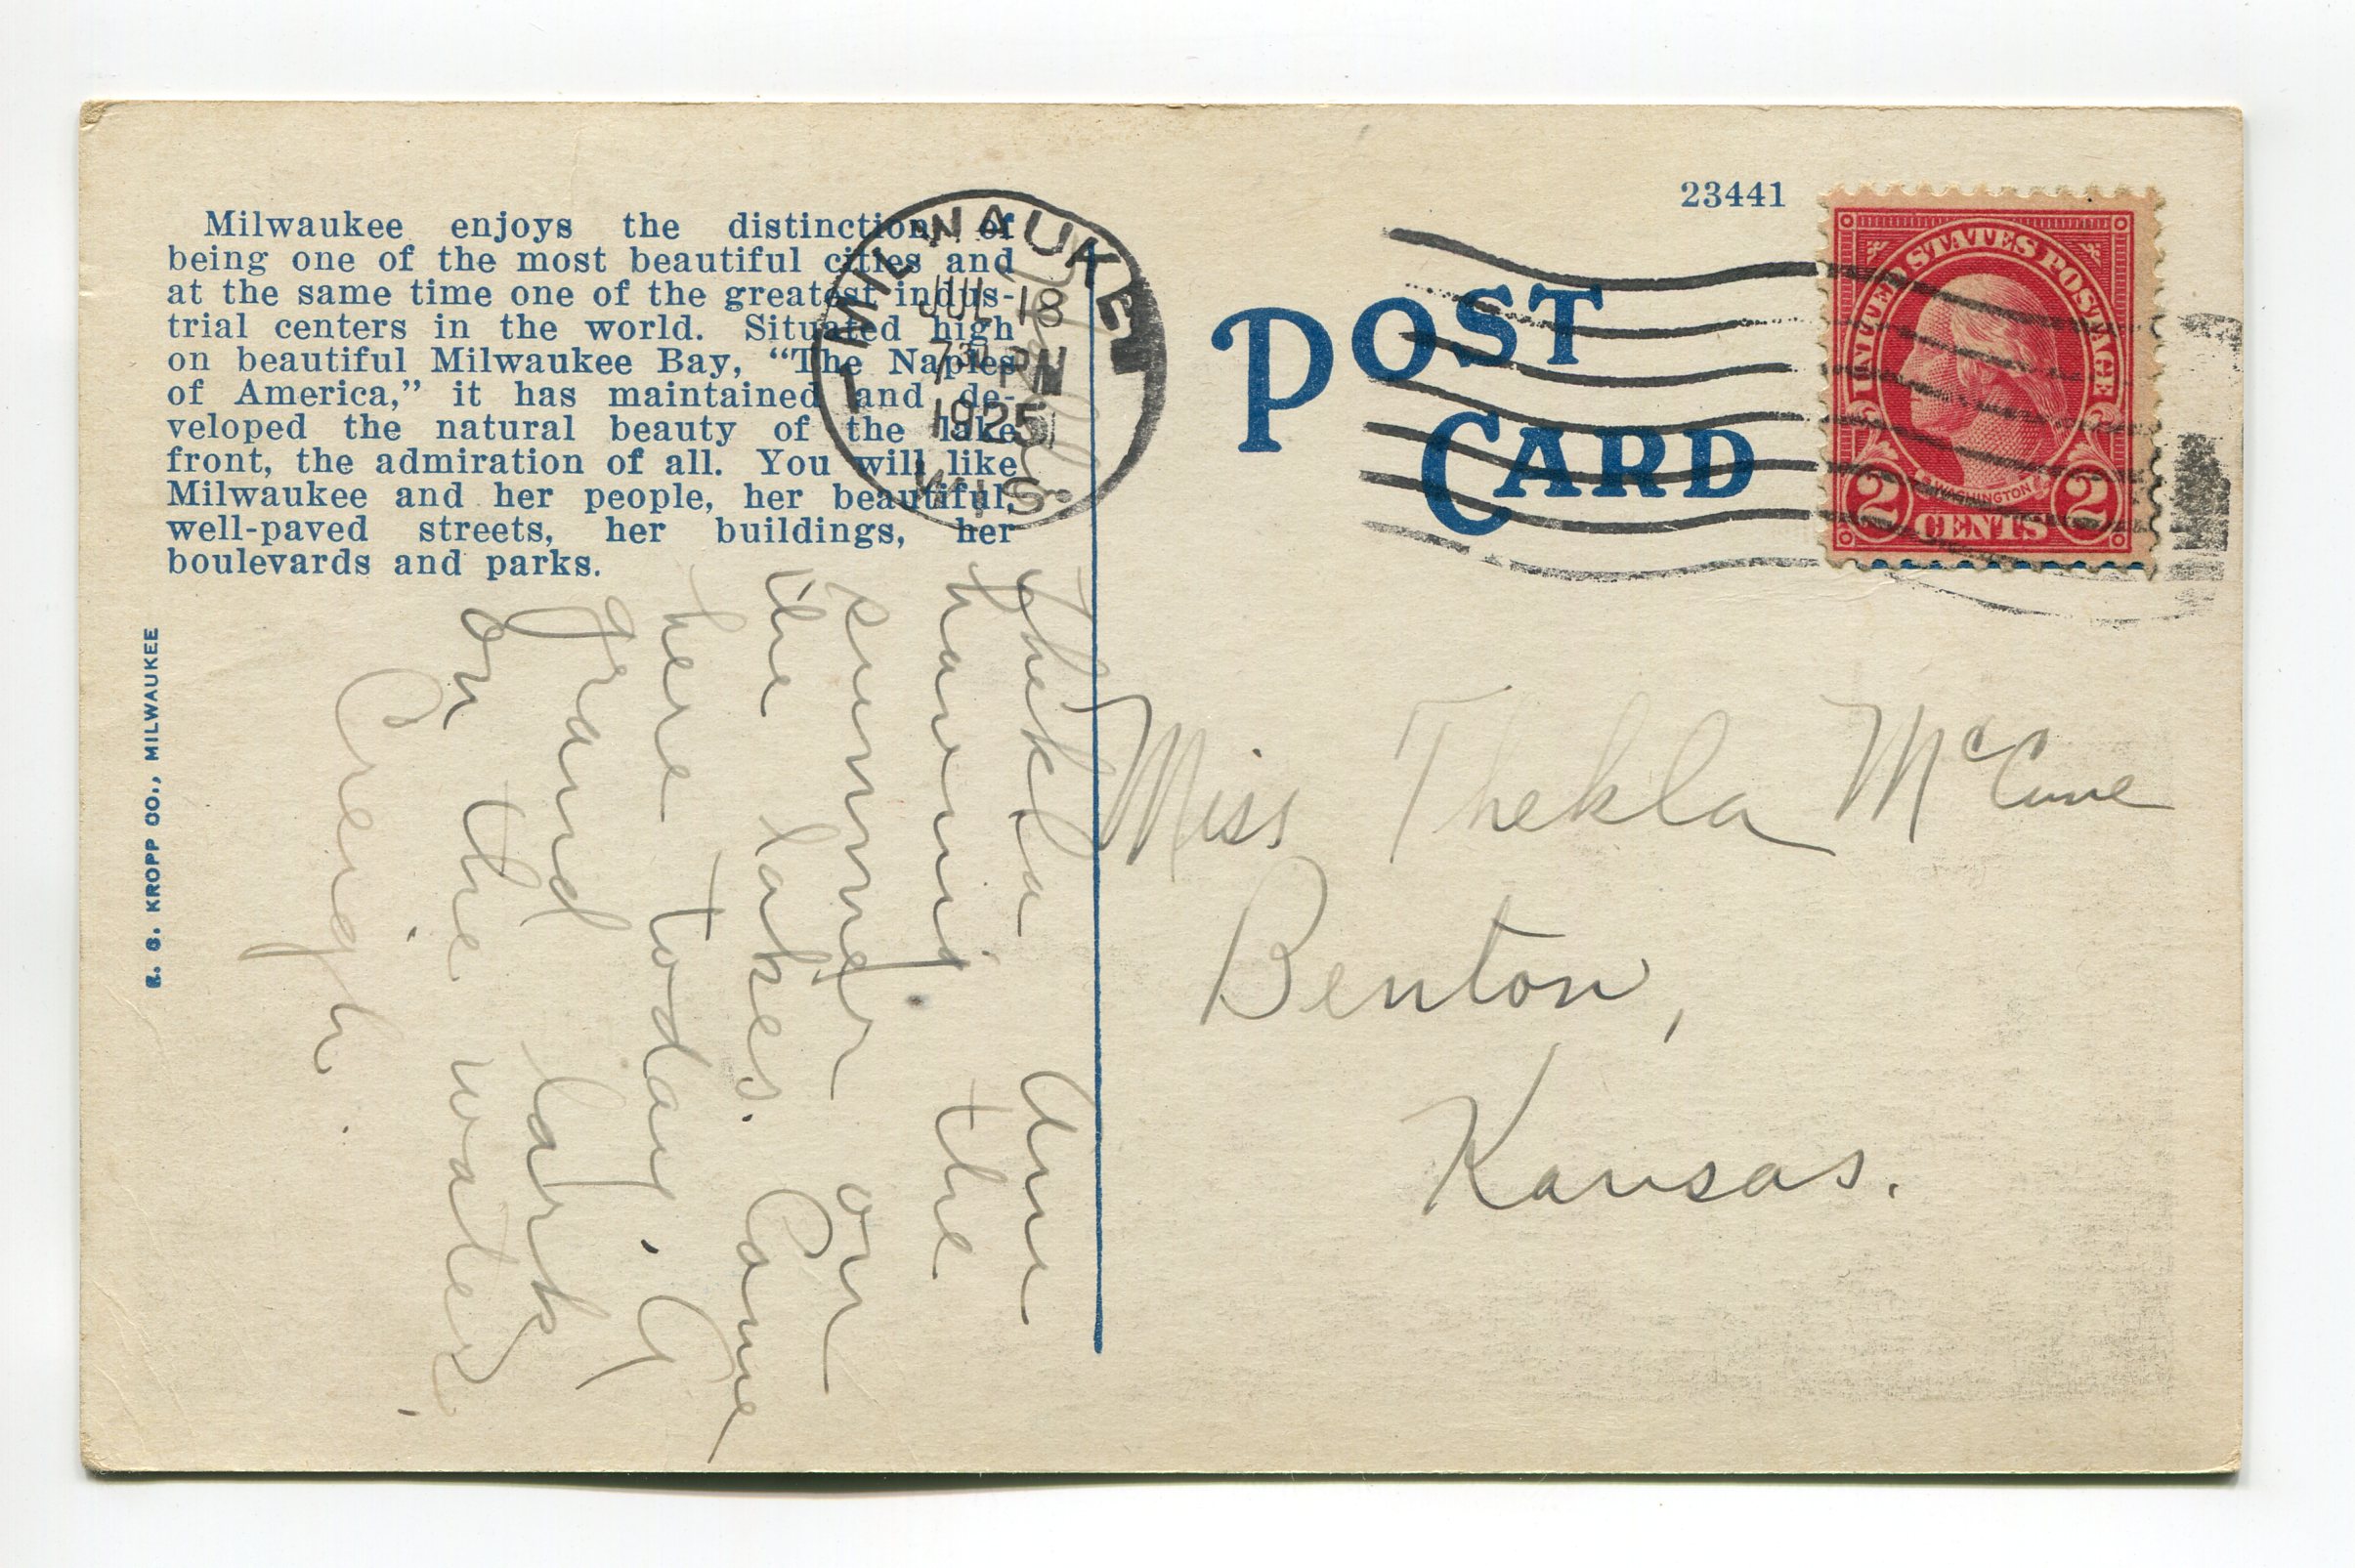 Milwaukee enjoys the distinction of
being one of the most beautiful cities and
at the same time one of the greatest indus-
trial centers in the world. Situated high
on beautiful Milwaukee Bay, “The Naples
of America,” it has maintained and de-
veloped the natural beauty of the lake
front, the admiration of all. You will like
Milwaukee and her people, her beautiful,
well-paved streets, her buildings, her
boulevards and parks.
E. C. KROPP CO., MILWAUKEE
MILWAUKEE
JUL 18
730 PM
1925
WIS.
23441
POST
CARD
UNITED STATES POSTAGE
WASHINGTON
2 CENTS 2
Thekla Am
having the
summer on
the lakes. Came
here today. A
grand lark
on the water.
Creigh.
Miss Thekla McCune
Benton,
Kansas.